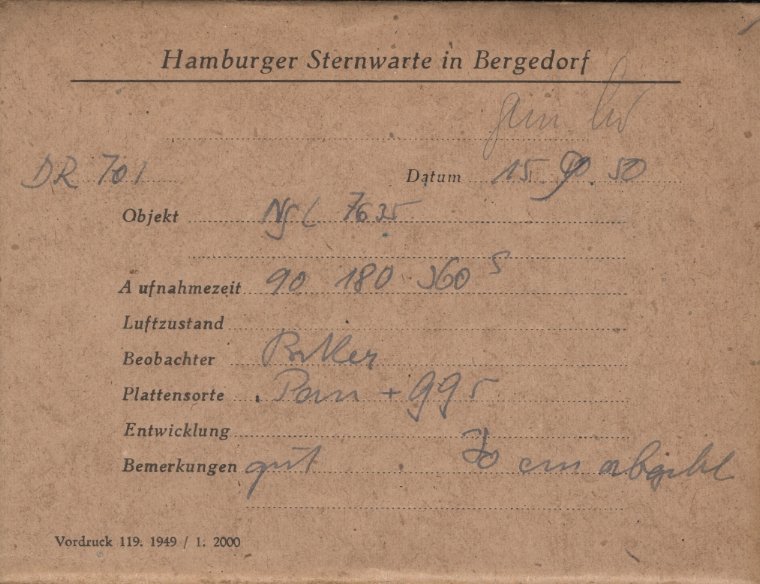 Hamburger Sternwarte in Bergedorf
DR 701 Datum 15. 50
Objekt NGC 7635
Aufnahmezeit 90 180 360 s
Luftzustand
Beobachter
Plattensorte Pan + gg5
Entwicklung
Bemerkungen gut 70 cm
Vordruck 119. 1949 / 1. 2000